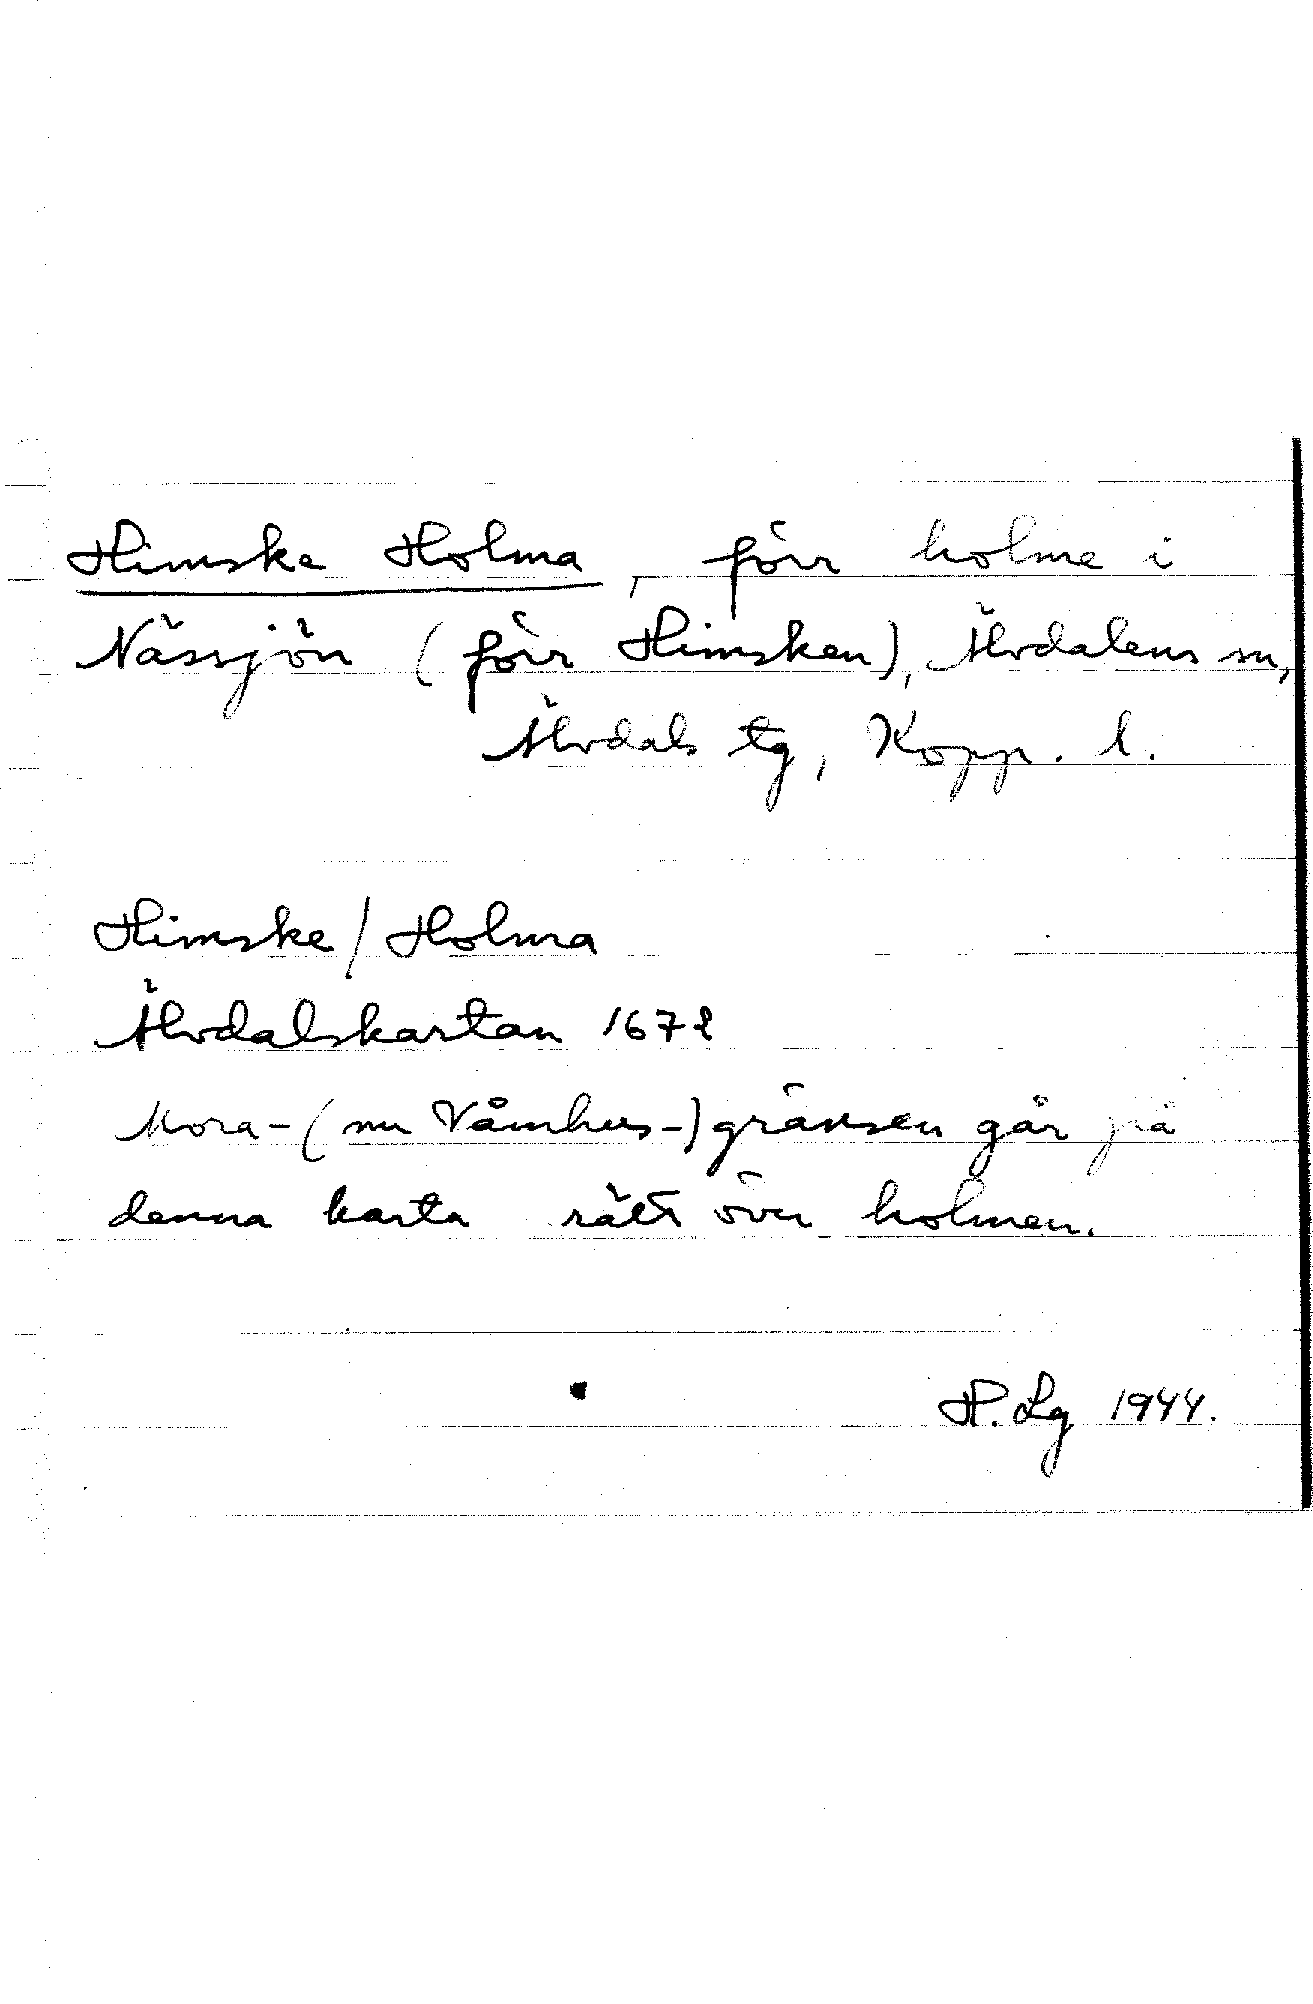 Himske Holma, förr holme i
Nässjön (förr Himsken), Älvdalens sn,
Älvdals tg, Kopp. l.
Himske/Holma
Älvdalskartan 1672
Mora-(nu Våmhus-)gränsen går på
denna karta rätt över holmen.
H. Lg 1944.